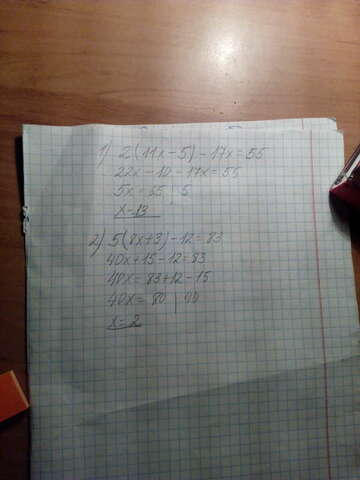 1) 2(11x-5)-17x=55
22x-10-17x=55
5x=65 | 5
x=13
2) 5(8x+3)-12=83
40x+15-12=83
40x=83+12-15
40x=80 | 40
x=2